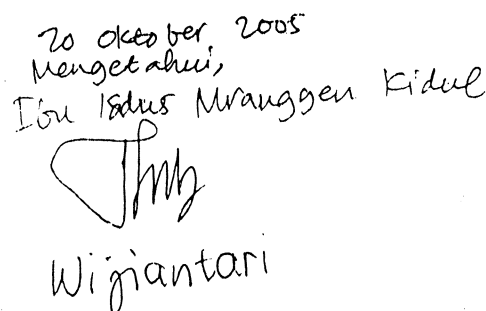 20 Oktober 2005
Mengetahui,
Ibu Kadus Mranggen Kidul
Wijiantari